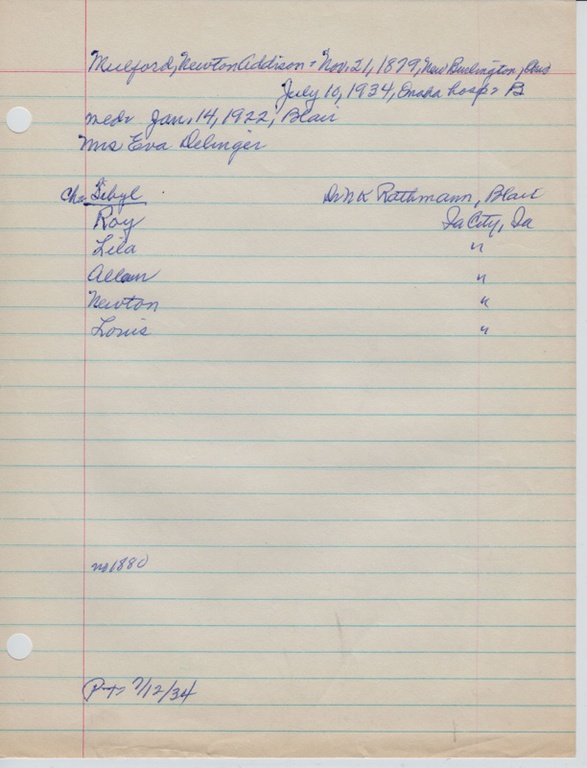 Mulford, Newton Addison - Nov. 21, 1879, New Burlington, Ohio
July 10, 1934, Omaha hosp - B
wed- Jan. 14, 1922, Blair
Mrs Eva Delinger
Ch- Sibyl Dr W K Rathmann, Blair
Roy Ia City, Ia
Lila "
Allan "
Newton "
Louis "
no 1880
7/12/34